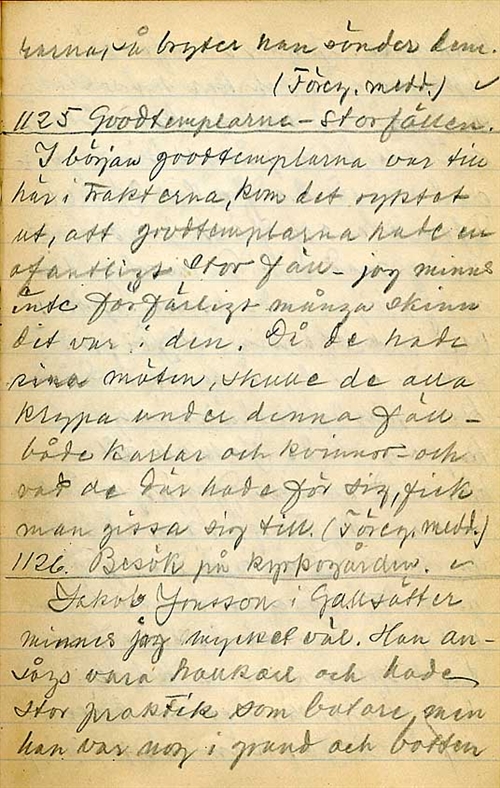 rarna, så bryter han sönder dem.
(Föreg. medd.) ✓
1125 Goodtemplarna – storfällen.
I början goodtemplarna var till
här i trakterna, kom det ryktet
ut, att goodtemplarna hade en
ofantligt stor fäll – jag minns
inte förfärligt många skinn
det var i den. Då de hade
sina möten, skulle de alla
krypa under denna fäll –
både karlar och kvinnor – och
vad de där hade för sig, fick
man gissa sig till. (Föreg. medd.)
1126. Besök på kyrkogården. ✓
Jakob Jonsson i Gallsätter
minnes jag mycket väl. Han an-
sågs vara och hade
stor praktik som botare, men
han var nog i grund och botten